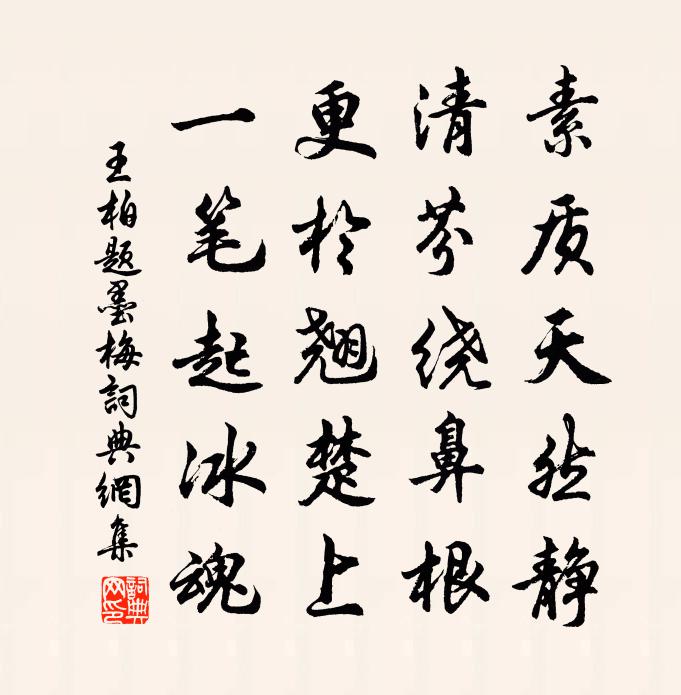 素质天然静
清芬绕鼻根
更於翘楚上
一笔起冰魂
王柏题墨梅詞典網集
詞典网印